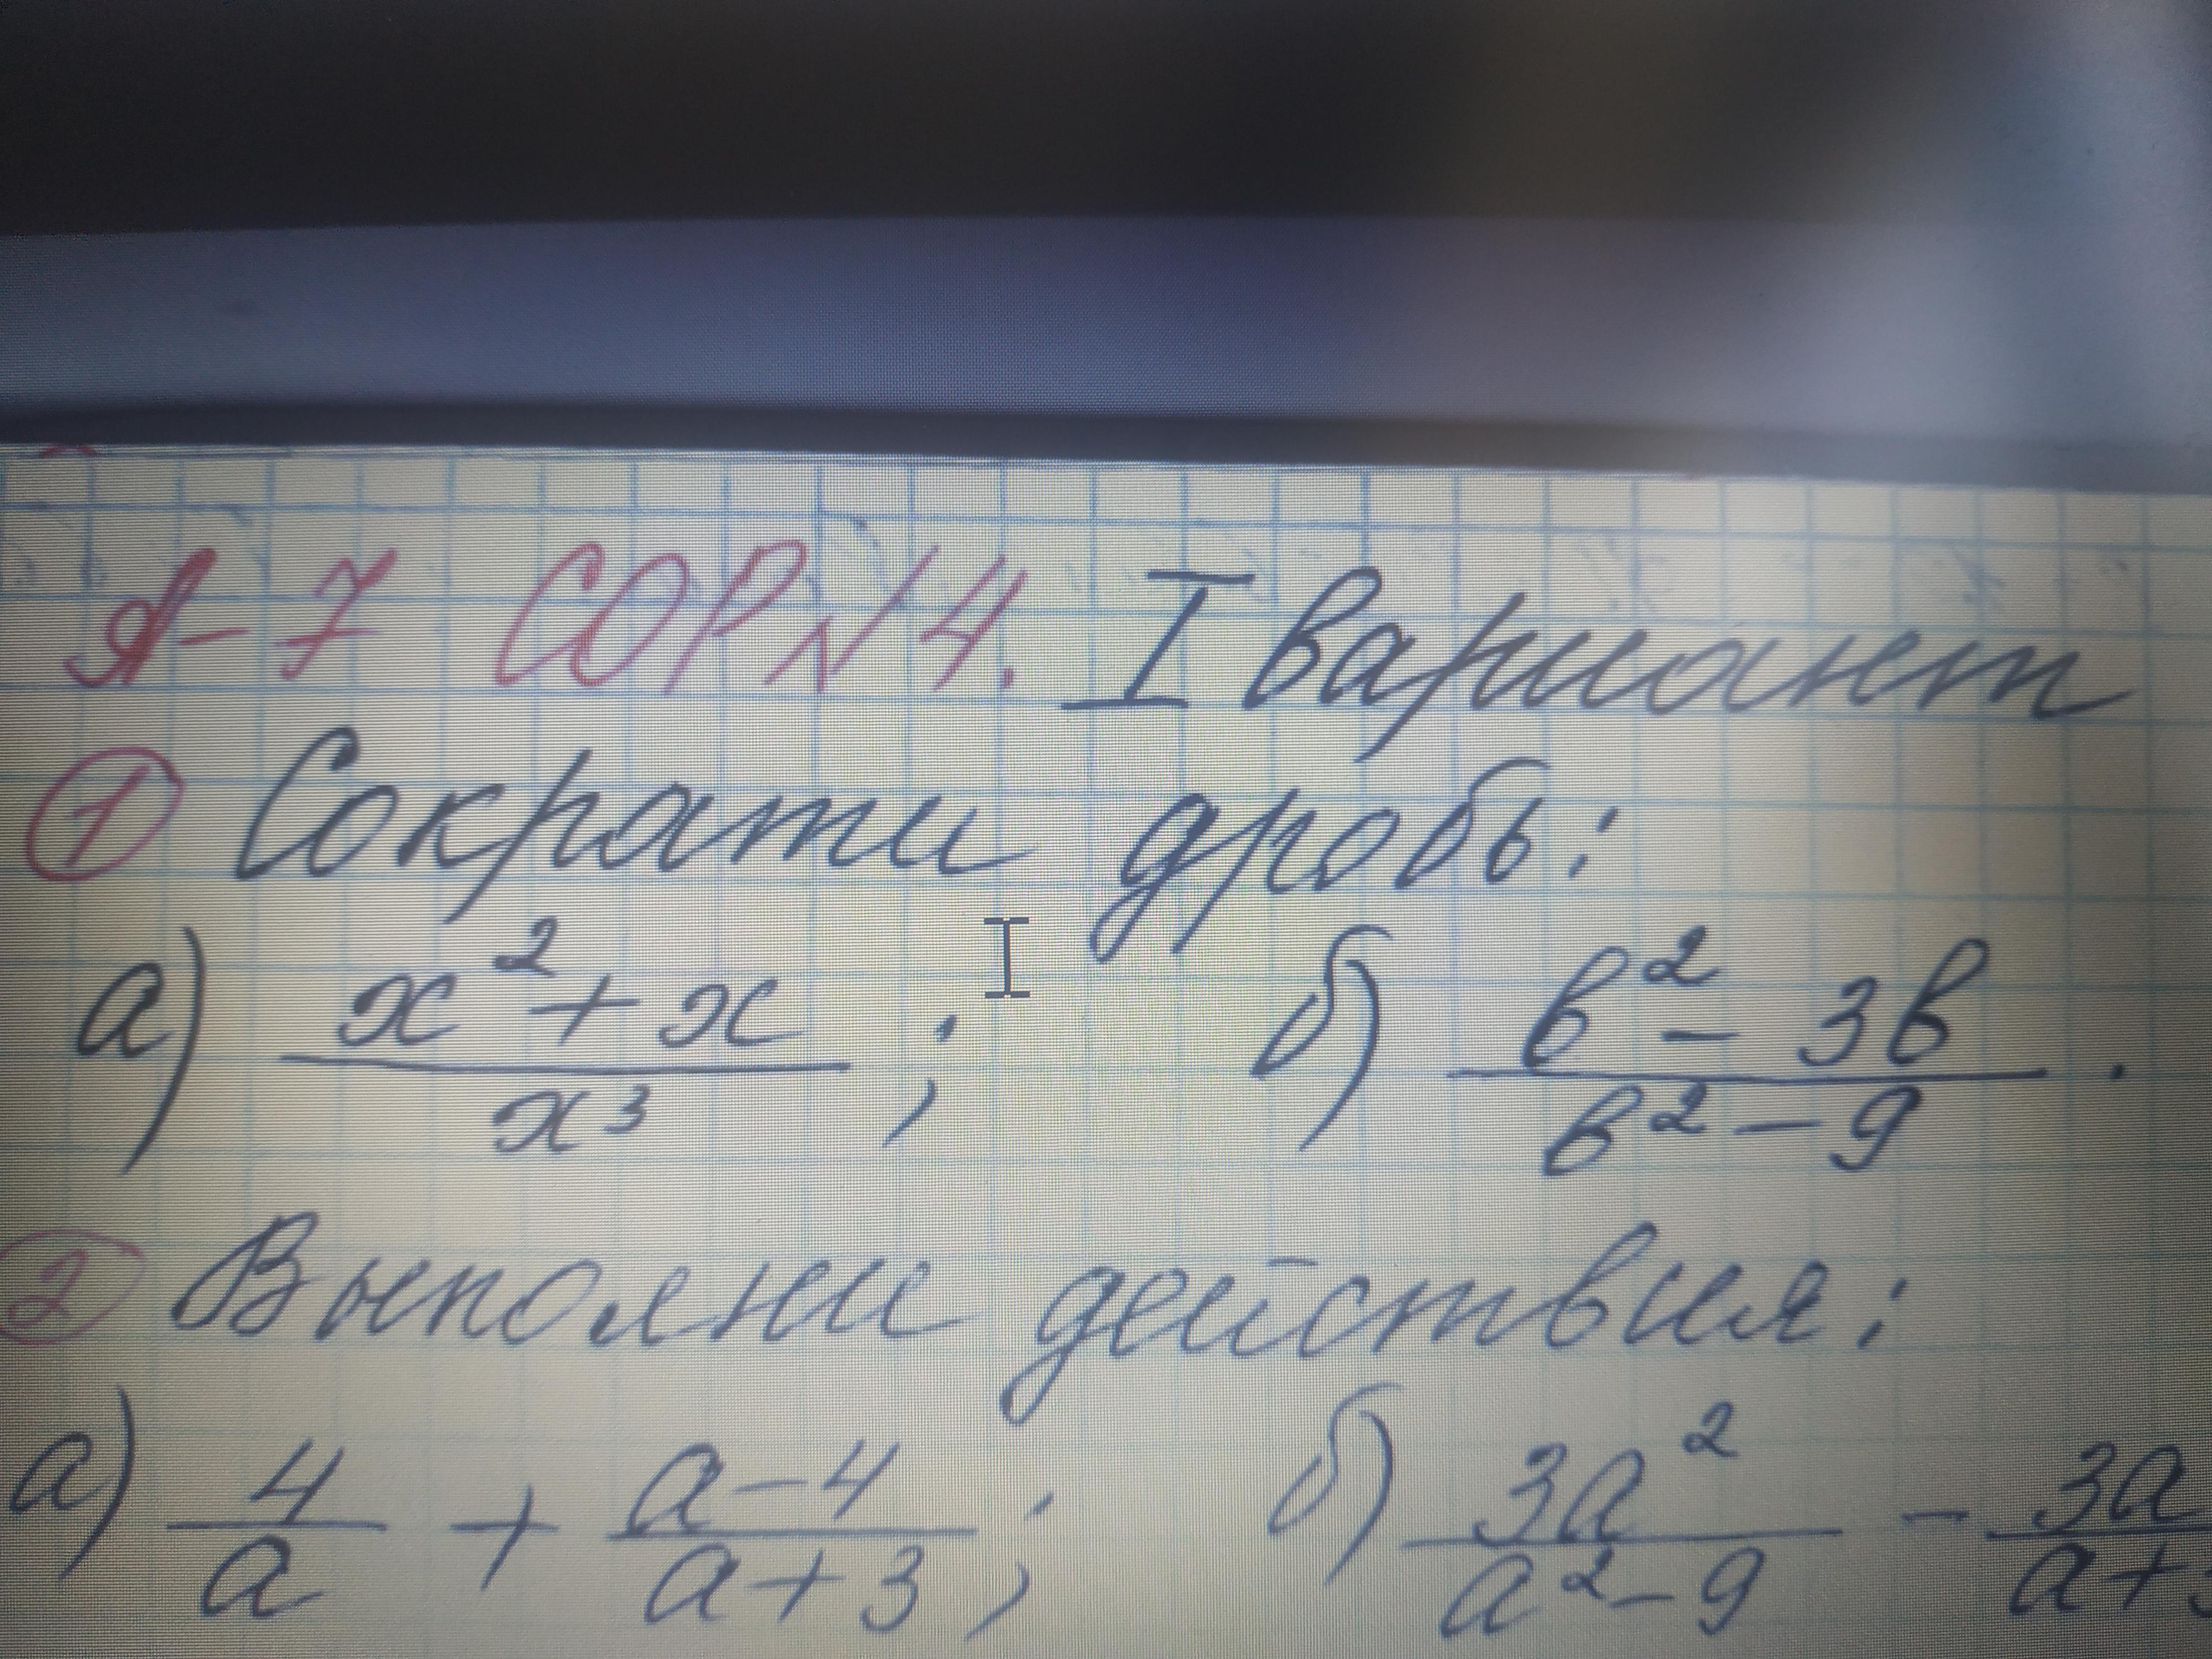 А-7 СОР №4. I вариант
① Сократи дробь:
а) (x² + x)/x³ ; б) (в² - 3в)/(в² - 9) .
② Выполни действия:
а) 4/a + (a - 4)/(a + 3) ; б) 3a²/(a² - 9) - 3a/(a +